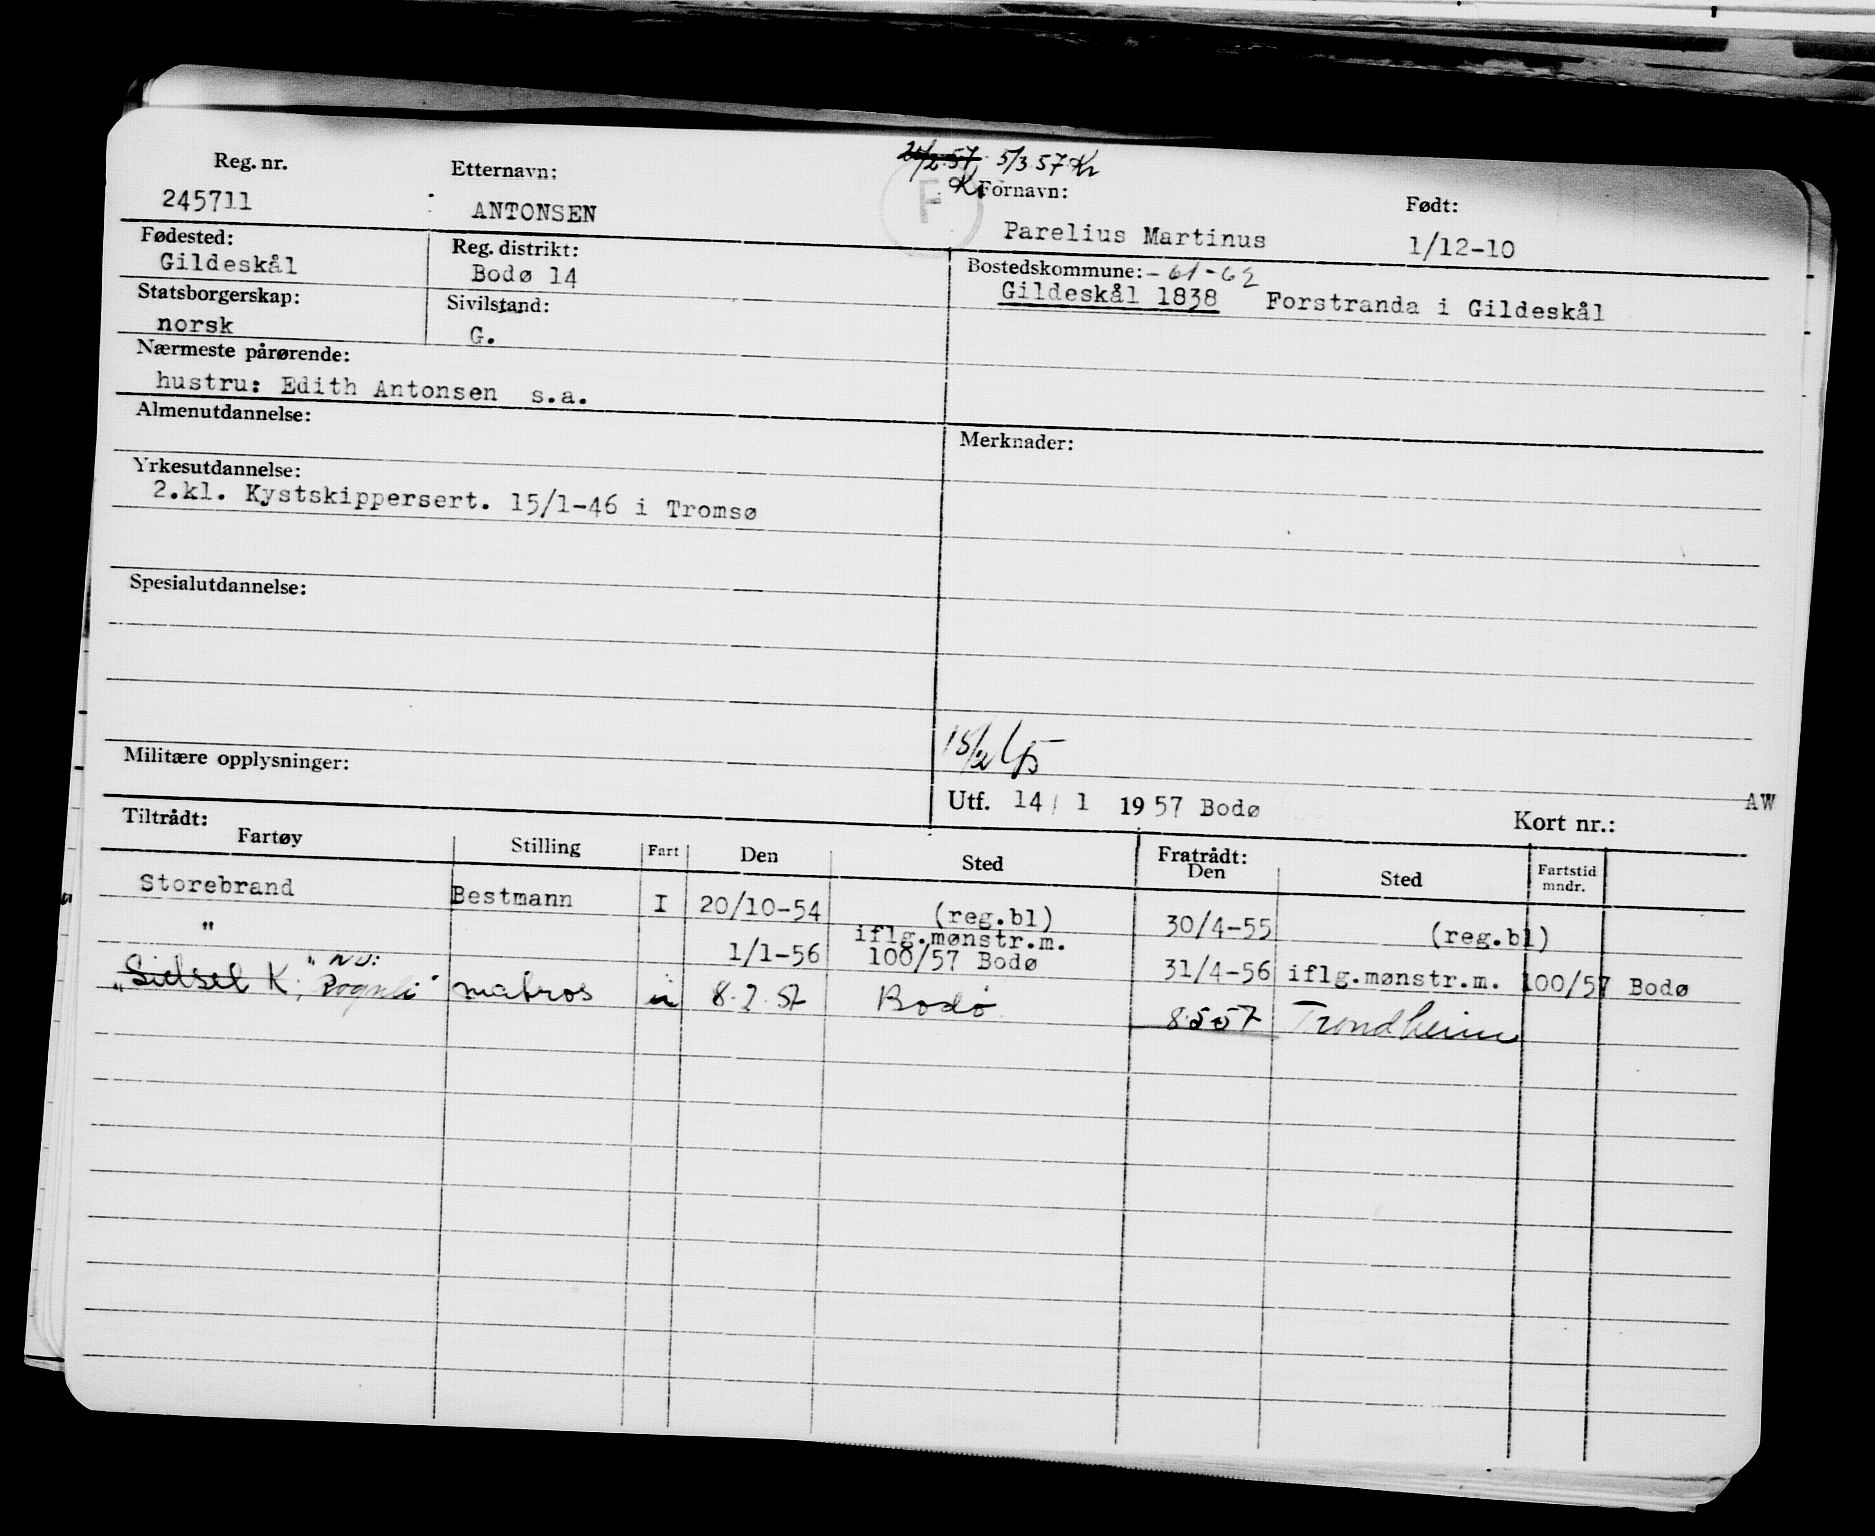 5/3.57 Kr
Reg. nr. Etternavn: Fornavn: Født:
245711 ANTONSEN F Parelius Martinus 1/12-10
Fødested: Reg. distrikt: Bostedskommune: - 61-62
Gildeskål Bodø 14 Gildeskål 1838 Forstranda i Gildeskål
Statsborgerskap: Sivilstand:
norsk G.
Nærmeste pårørende:
hustru: Edith Antonsen s.a.
Almenutdannelse: Merknader:
Yrkesutdannelse:
2.kl. Kystskippersert. 15/1-46 i Tromsø
Spesialutdannelse:
Militære opplysninger:
Utf. 14/1 1957 Bodø AW
Tiltrådt: Kort nr.:
Fartøy Stilling Fart Den Sted Fratrådt: Den Sted Fartstid mndr.
Storebrand Bestmann I 20/10-54 (reg.bl) 30/4-55 (reg.bl)
" 1/1-56 iflg.mønstr.m. 100/57 Bodø 31/4-56 iflg.mønstr.m. 100/57 Bodø
K, matros 8.2.57 Bodø 8.5.57 Trondheim